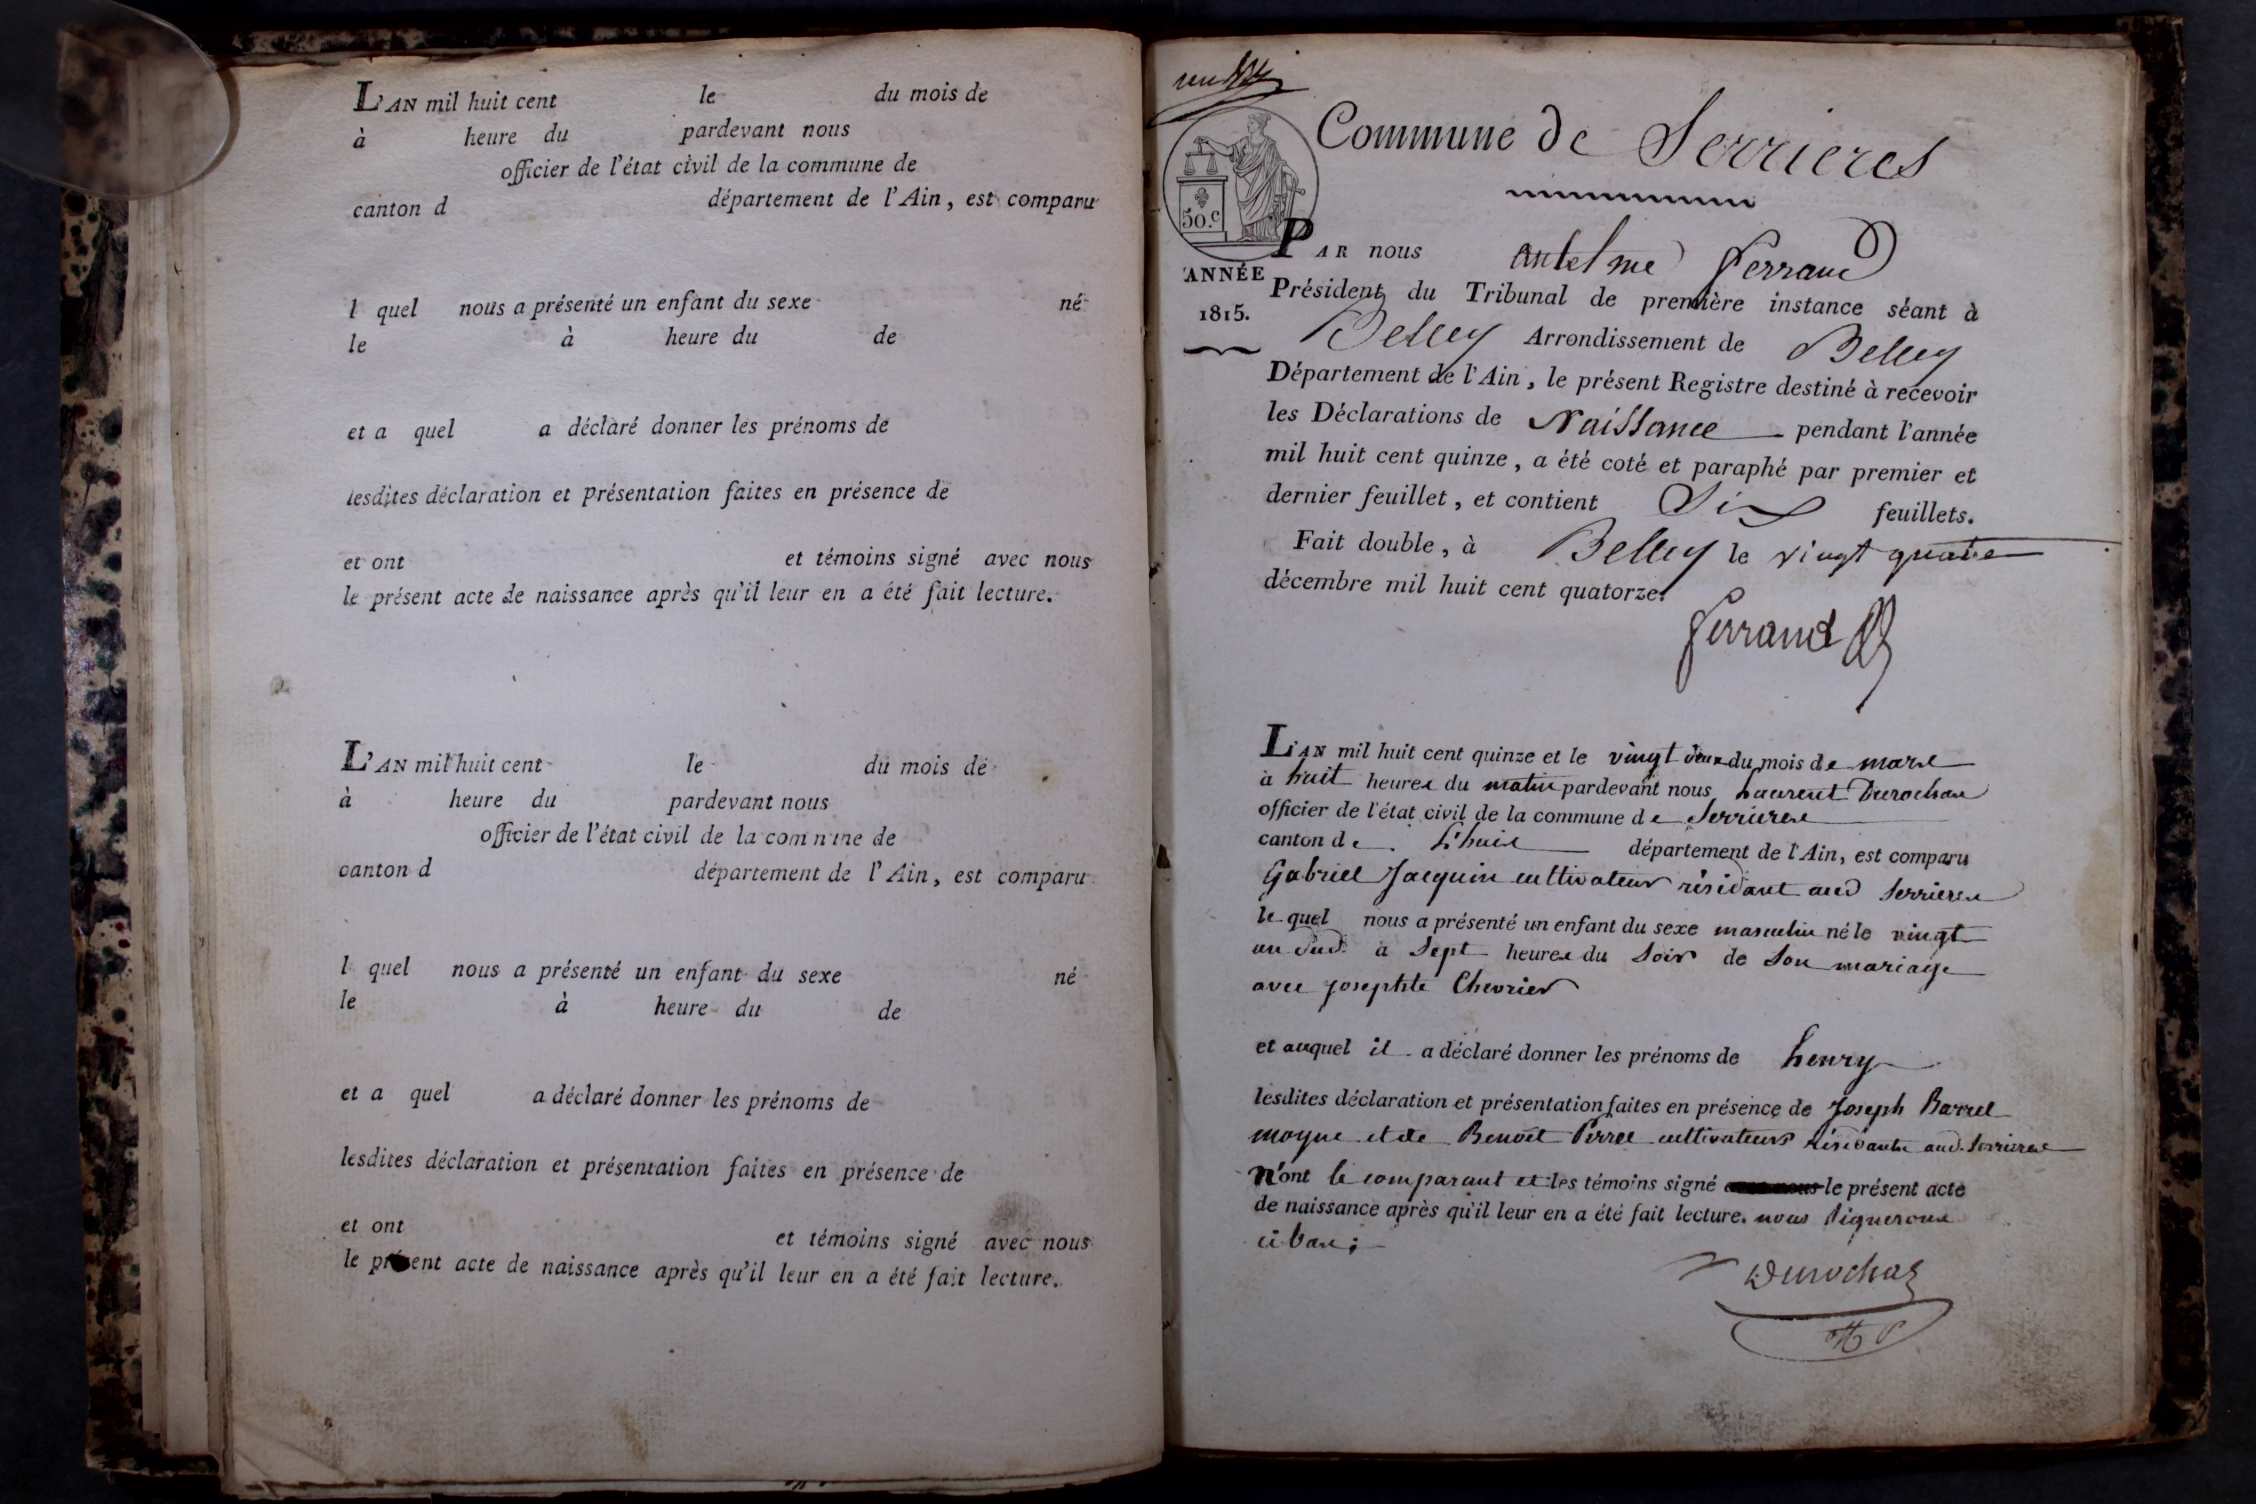 L'AN mil huit cent le du mois de
à heure du pardevant nous
officier de l'état civil de la commune de
canton d département de l'Ain, est comparu
l quel nous a présenté un enfant du sexe né
le à heure du de
et a quel a déclaré donner les prénoms de
lesdites déclaration et présentation faites en présence de
et ont et témoins signé avec nous
le présent acte de naissance après qu'il leur en a été fait lecture.
L'AN mil huit cent le du mois de
à heure du pardevant nous
officier de l'état civil de la commune de
canton d département de l'Ain, est comparu
l quel nous a présenté un enfant du sexe né
le à heure du de
et a quel a déclaré donner les prénoms de
lesdites déclaration et présentation faites en présence de
et ont et témoins signé avec nous
le présent acte de naissance après qu'il leur en a été fait lecture.
Commune de Serrieres
50.c
PAR nous antelme ferrand
ANNÉE
1815.
Président du Tribunal de première instance séant à
Belley Arrondissement de Belley
Département de l'Ain, le présent Registre destiné à recevoir
les Déclarations de Naissance pendant l'année
mil huit cent quinze, a été coté et paraphé par premier et
dernier feuillet, et contient Six feuillets.
Fait double, à Belley le vingt quatre
décembre mil huit cent quatorze.
ferrand
L'AN mil huit cent quinze et le vingt deux du mois de mars
à huit heures du matin pardevant nous Laurent Durochas
officier de l'état civil de la commune de Serrieres
canton de L'huis département de l'Ain, est comparu
Gabriel Jacquin cultivateur résidant aud Serrieres
le quel nous a présenté un enfant du sexe masculin né le vingt
un dud. à Sept heures du Soir de Son mariage
avec josephte Chevrier
et auquel il a déclaré donner les prénoms de henry
lesdites déclaration et présentation faites en présence de Joseph Barrel
moyne et de Benoit Perret cultivateurs résidants aud. Serrieres
N'ont le comparant et les témoins signé le présent acte
de naissance après qu'il leur en a été fait lecture. nous Signerons
ci bas;
Durochas